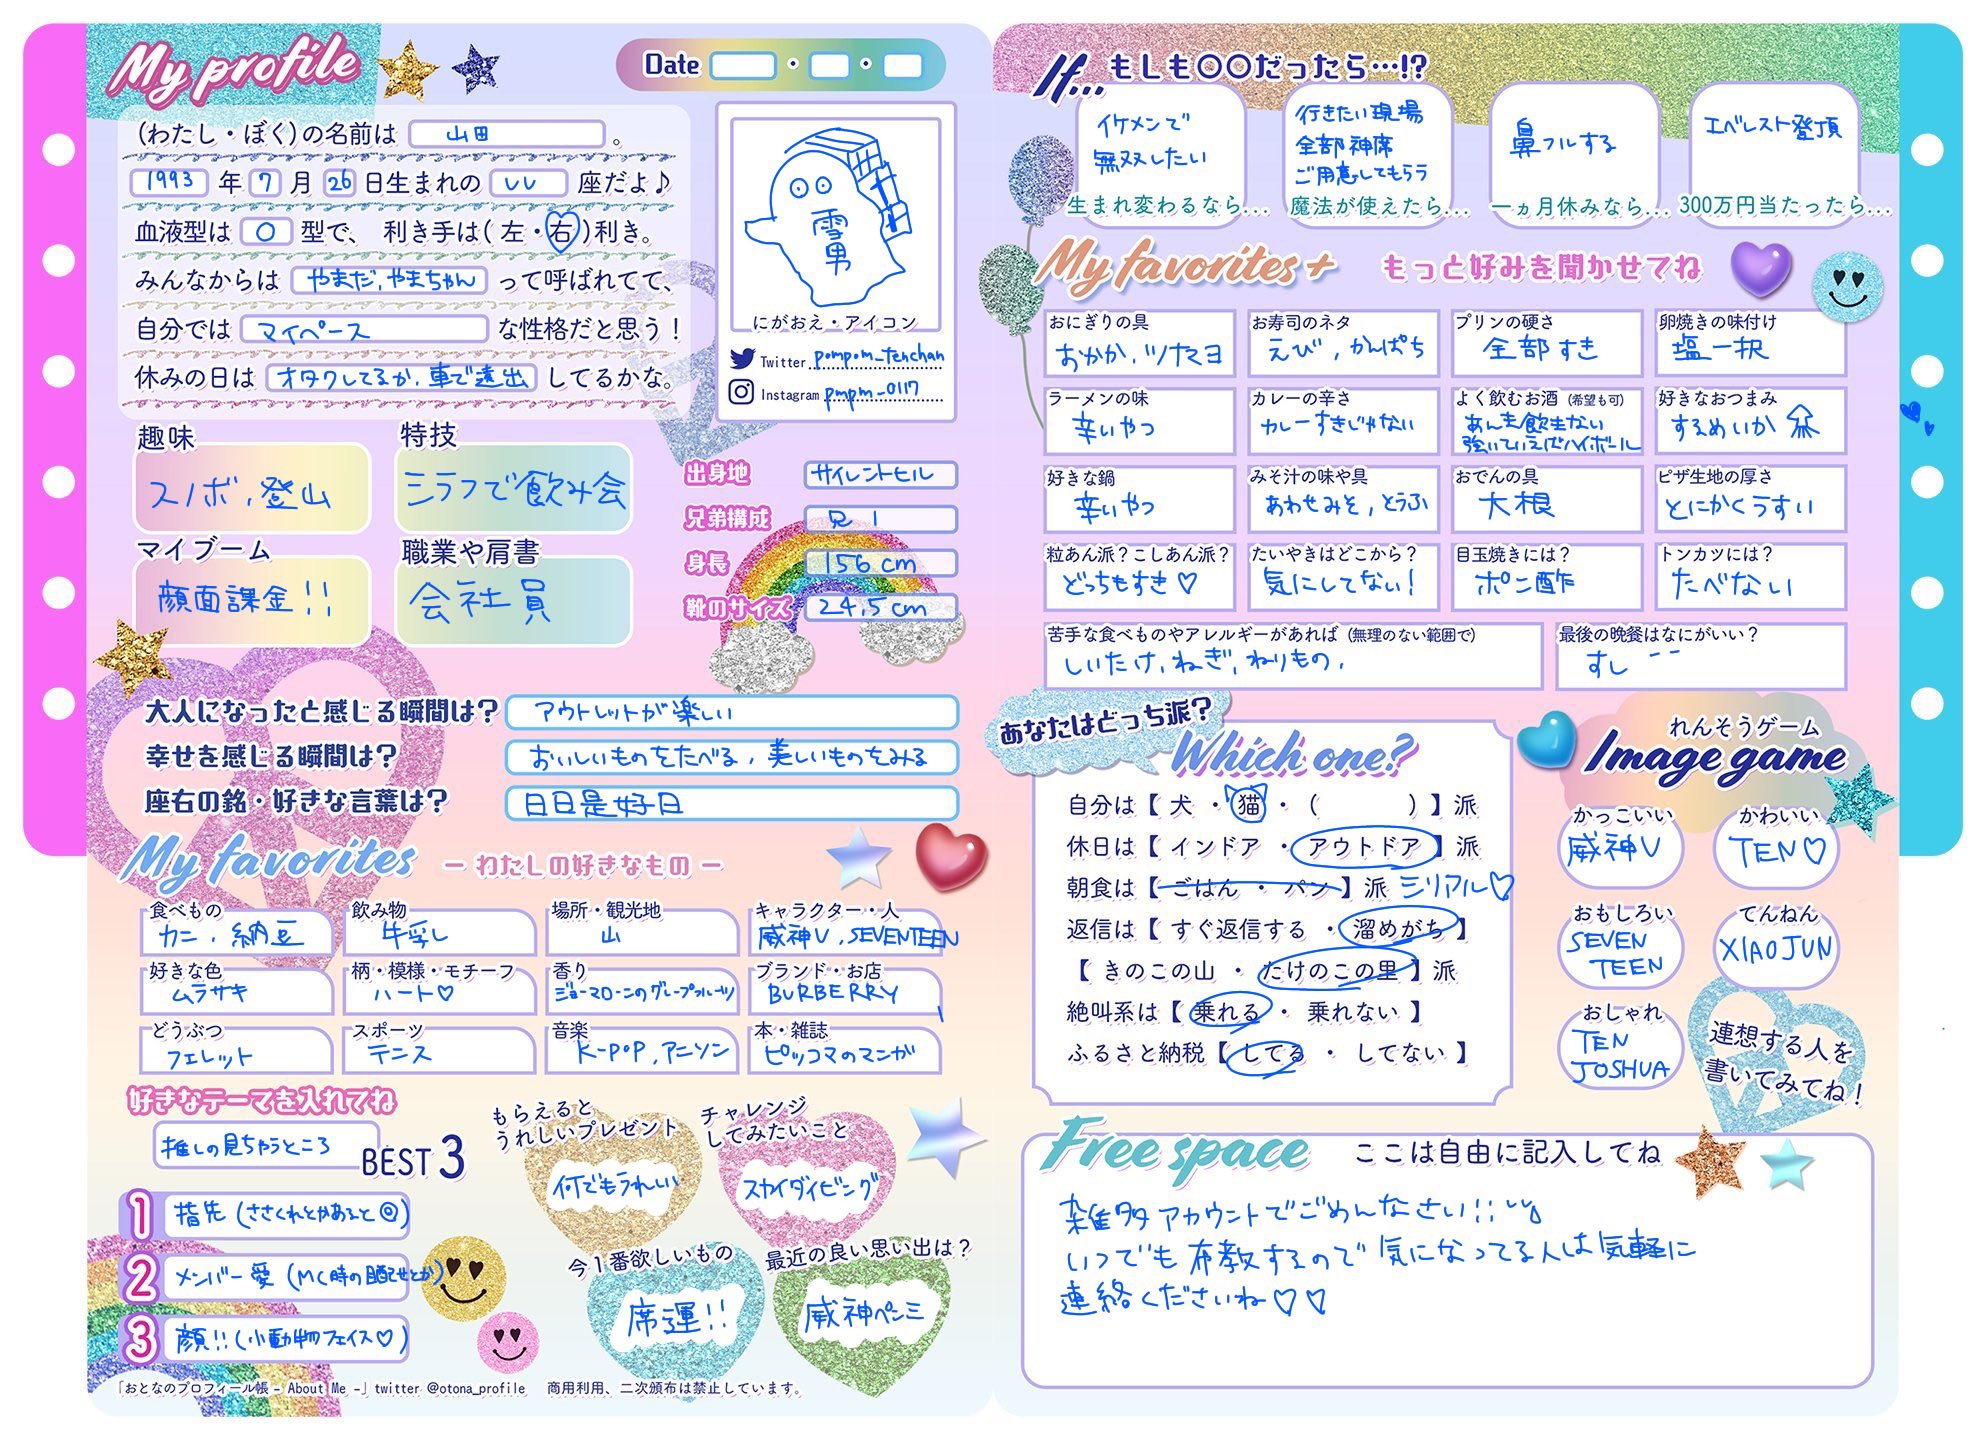 My profile
Date
(わたし・ぼく)の名前は 山田 。
1993 年 7 月 26 日生まれの しし 座だよ♪
血液型は O 型で、 利き手は( 左・右 )利き。
みんなからは やまだ,やまちゃん って呼ばれてて、
自分では マイペース な性格だと思う！
休みの日は オタクしてるか,車で遠出 してるかな。
雪男
にがおえ・アイコン
Twitter pompom_tenchan
Instagram pmpm_0117
趣味
スノボ,登山
特技
シラフで飲み会
マイブーム
顔面課金!!
職業や肩書
会社員
出身地 サイレントヒル
兄弟構成 兄 1
身長 156 cm
靴のサイズ 24.5 cm
大人になったと感じる瞬間は? アウトレットが楽しい
幸せを感じる瞬間は? おいしいものをたべる,美しいものをみる
座右の銘・好きな言葉は? 日日是好日
My favorites – わたしの好きなもの –
食べもの
カニ,納豆
飲み物
牛乳
場所・観光地
山
キャラクター・人
威神V,SEVENTEEN
好きな色
ムラサキ
柄・模様・モチーフ
ハート♡
香り
ジョーマローンのグレープフルーツ
ブランド・お店
BURBERRY
どうぶつ
フェレット
スポーツ
テニス
音楽
K-POP,アニソン
本・雑誌
ピッコマのマンガ
好きなテーマを入れてね
推しの見ちゃうところ
BEST 3
1 指先 (ささくれとかあると◎)
2 メンバー愛 (MC時の目配せとか)
3 顔!!(小動物フェイス♡)
もらえると
うれしいプレゼント
何でもうれしい
チャレンジ
してみたいこと
スカイダイビング
今1番欲しいもの
席運!!
最近の良い思い出は？
威神ペンミ
「おとなのプロフィール帳 - About Me -」twitter @otona_profile 商用利用、二次頒布は禁止しています。
If... もしも〇〇だったら…!?
イケメンで
無双したい
生まれ変わるなら...
行きたい現場
全部神席
ご用意してもらう
魔法が使えたら...
鼻フルする
一ヵ月休みなら...
エベレスト登頂
300万円当たったら...
My favorites+ もっと好みを聞かせてね
おにぎりの具
おかか,ツナマヨ
お寿司のネタ
えび,かんぱち
プリンの硬さ
全部すき
卵焼きの味付け
塩一択
ラーメンの味
辛いやつ
カレーの辛さ
カレーすきじゃない
よく飲むお酒 (希望も可)
あんま飲まない
強いていえばハイボール
好きなおつまみ
するめいか
好きな鍋
辛いやつ
みそ汁の味や具
あわせみそ,とうふ
おでんの具
大根
ピザ生地の厚さ
とにかくうすい
粒あん派？こしあん派？
どっちもすき♡
たいやきはどこから？
気にしてない!
目玉焼きには？
ポン酢
トンカツには？
たべない
苦手な食べものやアレルギーがあれば (無理のない範囲で)
しいたけ,ねぎ,ねりもの,
最後の晩餐はなにがいい？
すし
あなたはどっち派?
Which one?
自分は【 犬 ・ 猫 ・ ( ) 】派
休日は【 インドア ・ アウトドア 】派
朝食は【 ごはん ・ パン 】派 シリアル♡
返信は【 すぐ返信する ・ 溜めがち 】
【 きのこの山 ・ たけのこの里 】派
絶叫系は【 乗れる ・ 乗れない 】
ふるさと納税【 してる ・ してない 】
れんそうゲーム
Image game
かっこいい
威神V
かわいい
TEN♡
おもしろい
SEVEN
TEEN
てんねん
XIAOJUN
おしゃれ
TEN
JOSHUA
連想する人を
書いてみてね！
Free space ここは自由に記入してね
雑多アカウントでごめんなさい!!
いつでも布教するので気になってる人は気軽に
連絡くださいね♡♡